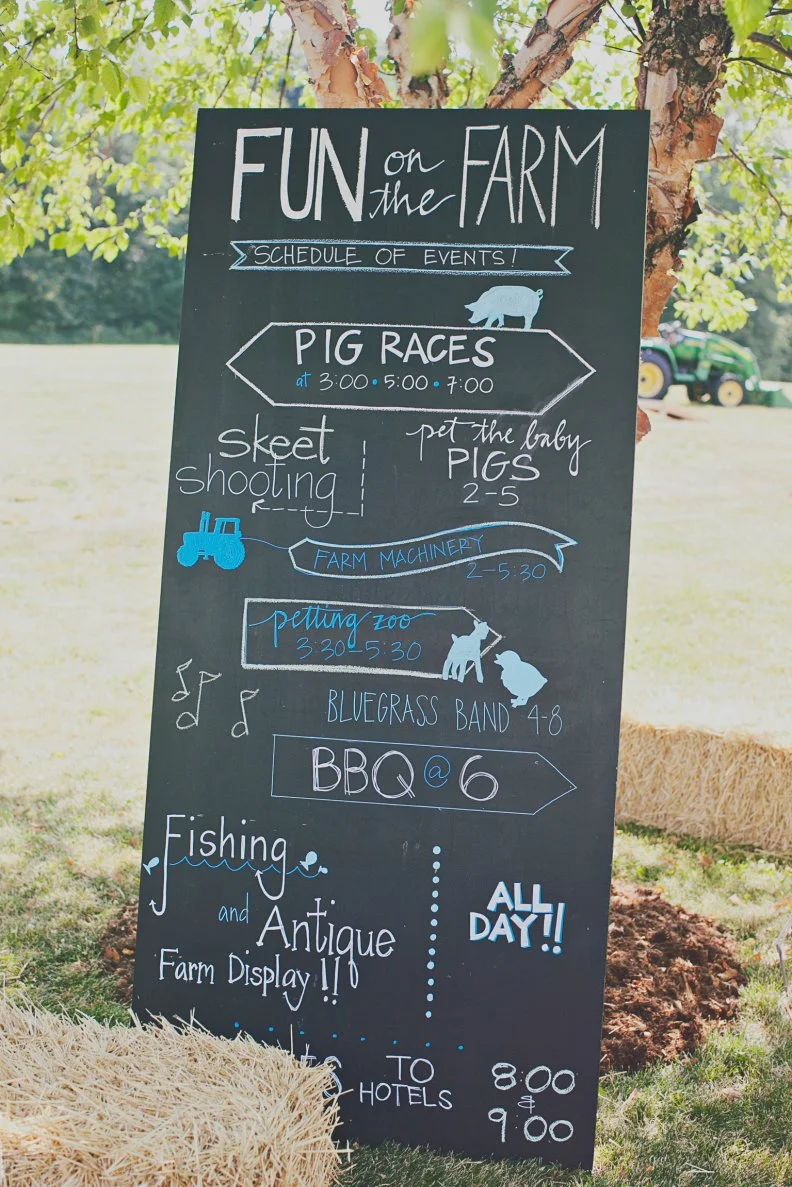 FUN on the FARM
SCHEDULE OF EVENTS!
PIG RACES
at 3:00 • 5:00 • 7:00
skeet
shooting
pet the baby
PIGS
2-5
FARM MACHINERY
2-5:30
petting zoo
3:30-5:30
BLUEGRASS BAND 4-8
BBQ @ 6
Fishing
and Antique
Farm Display!!
ALL
DAY!!
TO
HOTELS
8:00
&
9:00